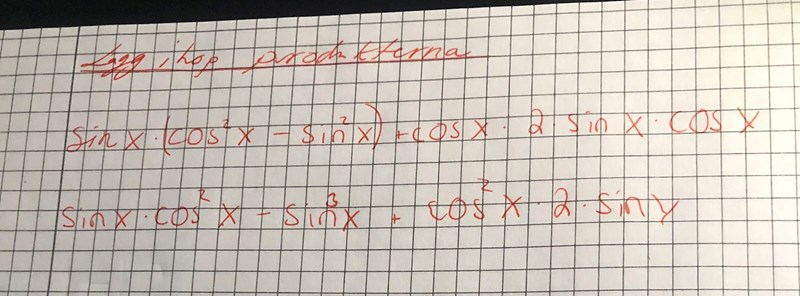 Lägg ihop produkterna
sin x · (cos²x - sin²x) + cos x · 2 · sin x · cos x
sin x · cos²x - sin³x + cos²x · 2 · sin x